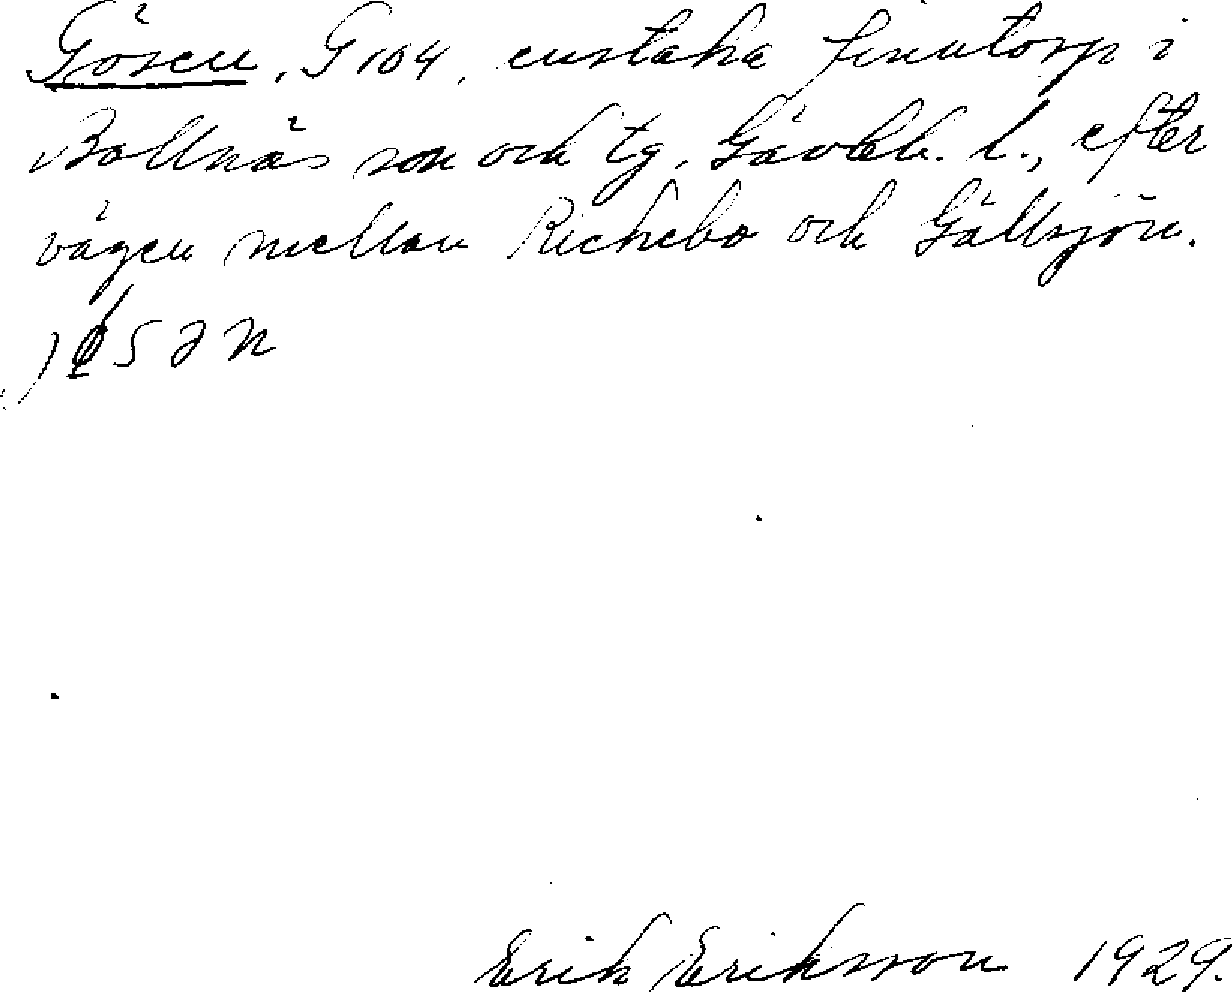 Gösen, G 104, enstaka finntorp i
Bollnäs sn och tg, Gävleb. l., efter
vägen mellan Rickebo och Gällsjön.
Erik Eriksson 1929.